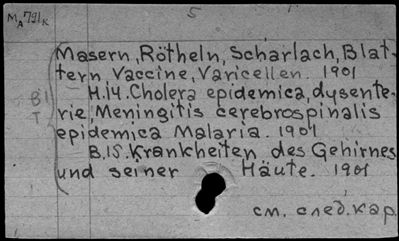 MA791K
5
Masern, Rötheln, Scharlach, Blat-
tern, Vaccine, Varicellen. 1901
H.14. Cholera epidemica, dysente-
rie, Meningitis cerebrospinalis
epidemica Malaria. 1901
B.15. Krankheiten des Gehirnes
und seiner Häute. 1901
см. след. кар.